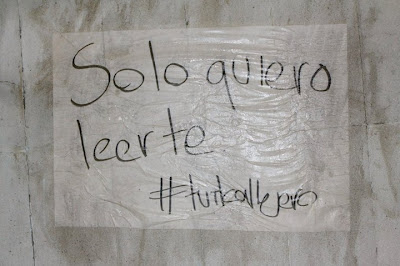 Solo quiero
leerte
#tuitcallejero